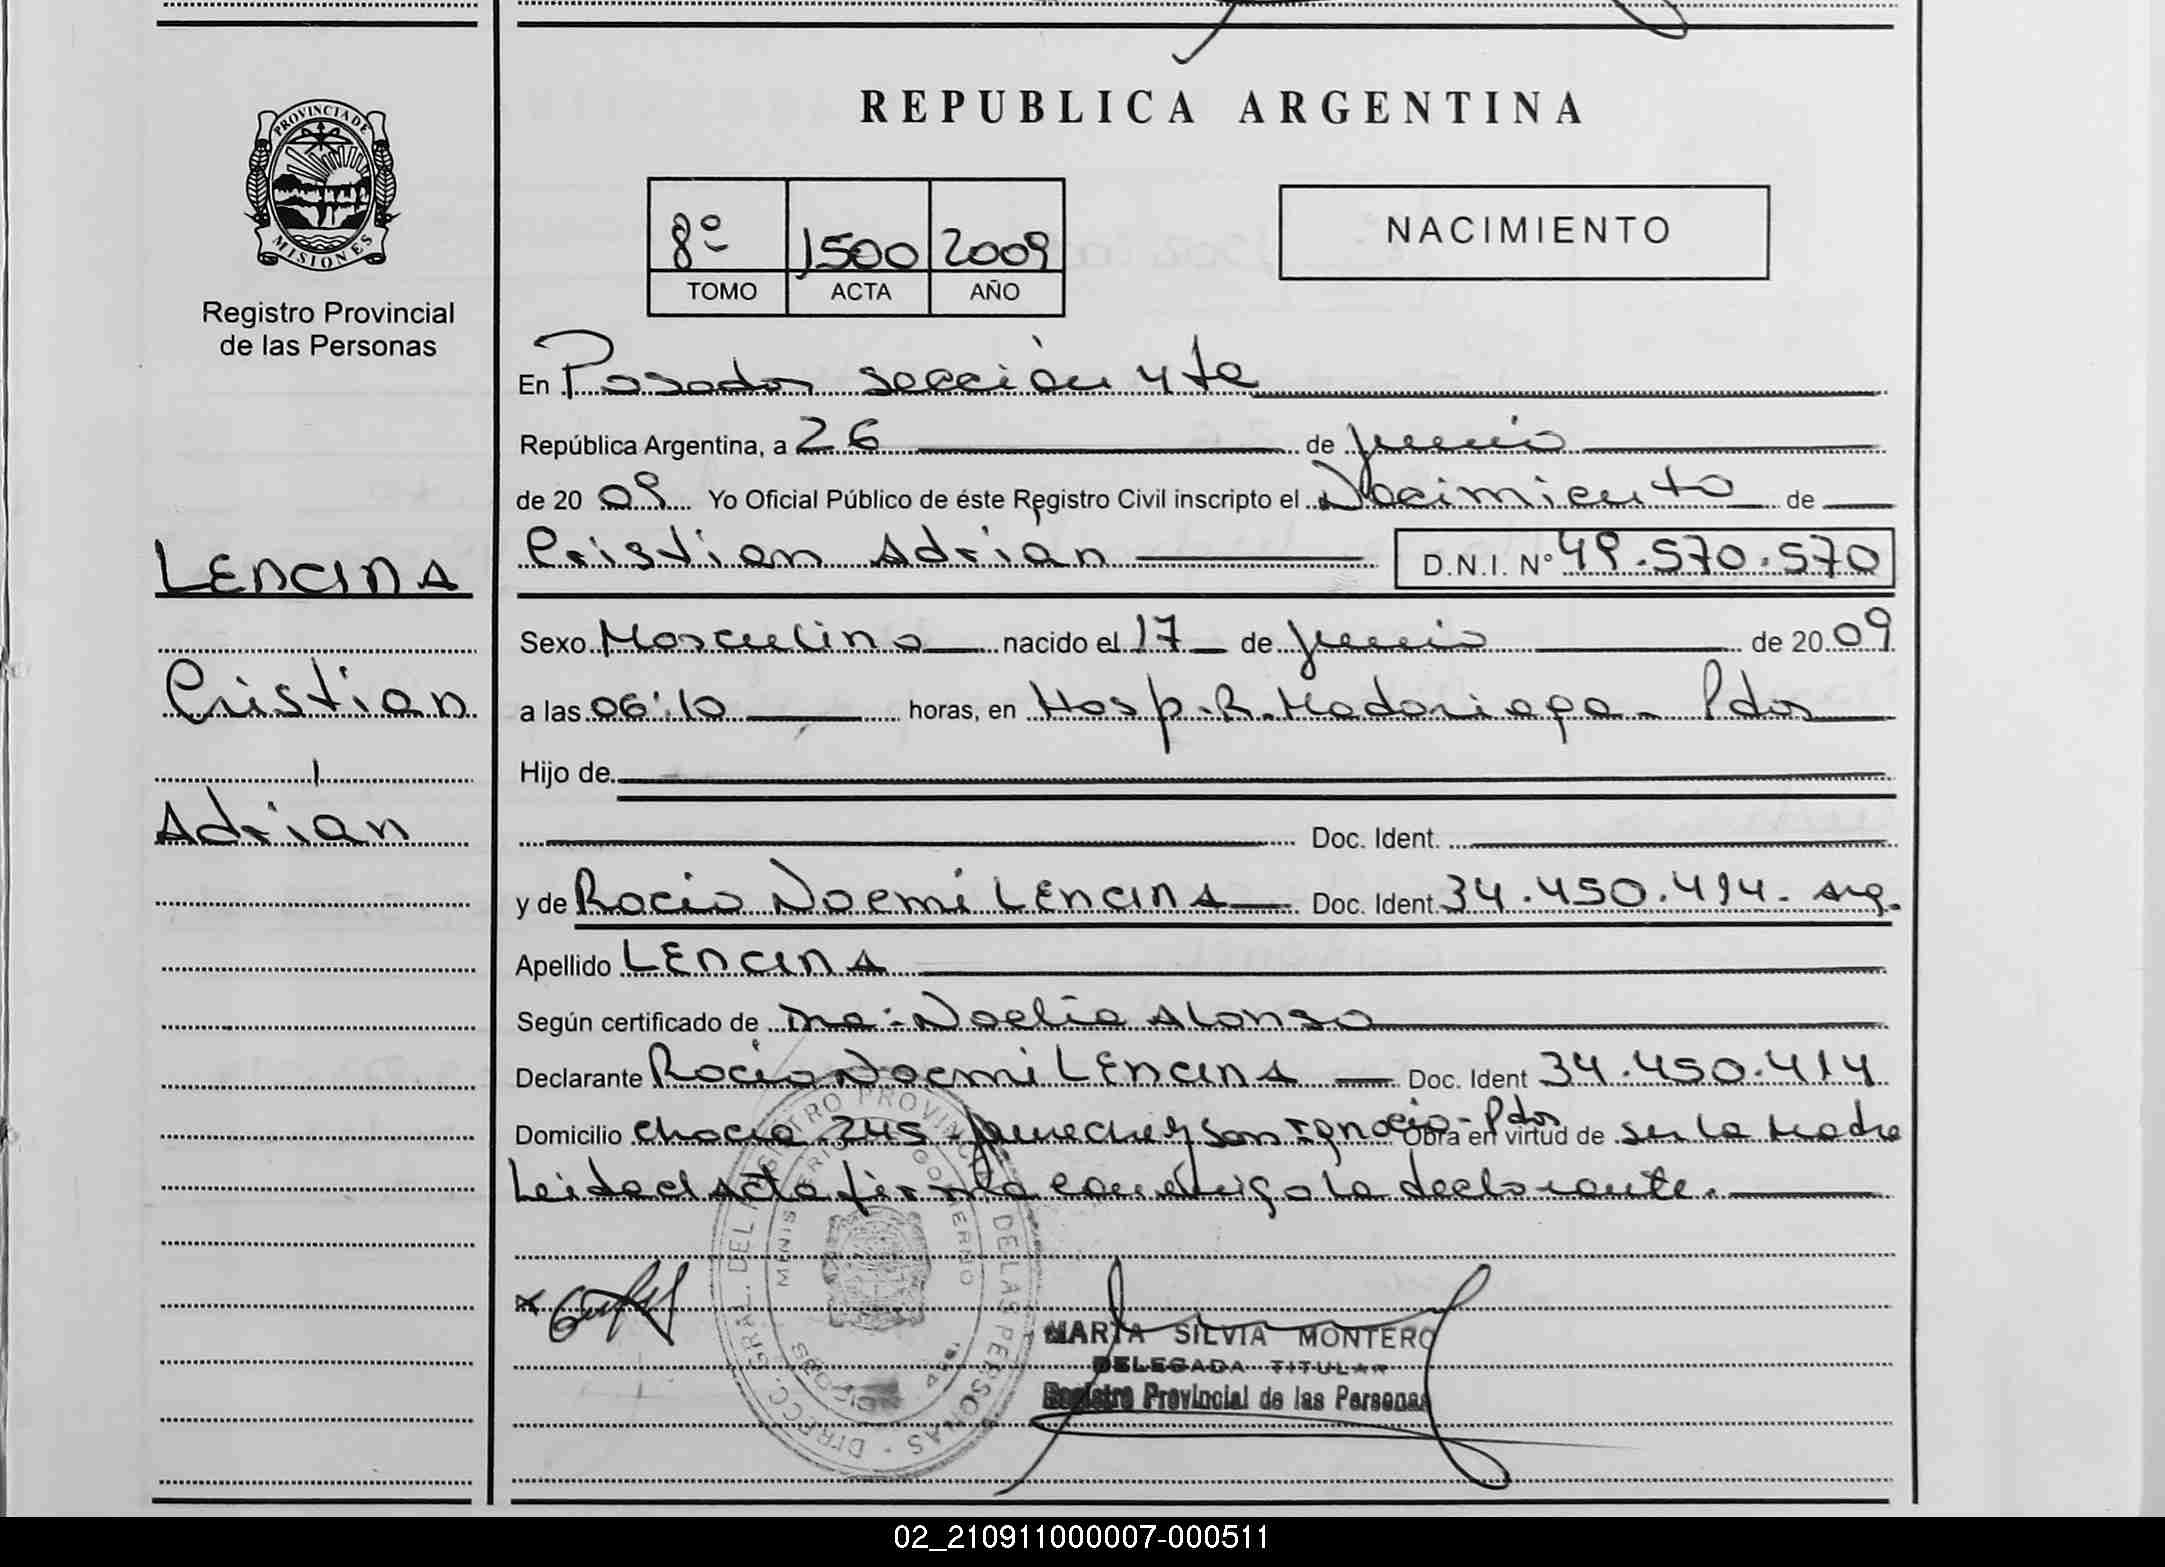 REPUBLICA ARGENTINA
PROVINCIA DE
MISIONES
Registro Provincial
de las Personas
8º 1500 2009
TOMO ACTA AÑO
NACIMIENTO
En Posadas sección 4ta
República Argentina, a 26 de junio
de 2009 Yo Oficial Público de éste Registro Civil inscripto el Nacimiento de
LENCINA
Cristian Adrián D.N.I. Nº 49.570.570
Sexo Masculino nacido el 17 de junio de 2009
Cristian
a las 06:10 horas, en Hosp. R. Madariaga - Pdas
Hijo de
Adrián
Doc. Ident.
y de Rocio Noemi LENCINA Doc. Ident. 34.450.414 - arg.
Apellido LENCINA
Según certificado de Noelia Alonso
Declarante Rocio Noemi LENCINA Doc. Ident 34.450.414
Domicilio chacra 245 San Ignacio - Pdas Obra en virtud de ser la Madre
Leida el Acta firmla conmigo la declarante.
DIRECC. GRAL. DEL REGISTRO PROVINCIAL DE LAS PERSONAS
GOBIERNO
MARTA SILVIA MONTERO
DELEGADA TITULAR
Registro Provincial de las Personas
02_210911000007-000511